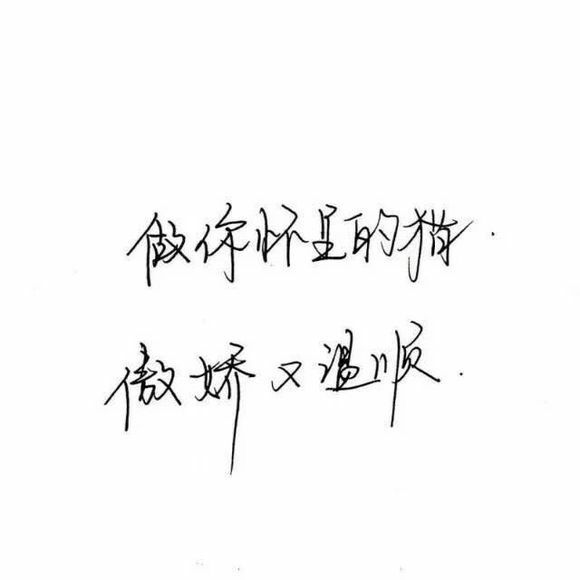 做你怀里的猫.
傲娇又温顺.